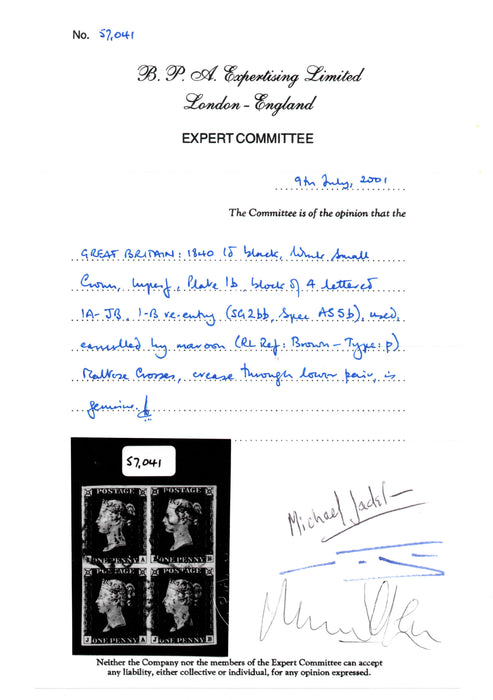 No. 57,041
B. P. A. Expertising Limited
London - England
EXPERT COMMITTEE
9th July, 2001
The Committee is of the opinion that the
GREAT BRITAIN: 1840 1d black, Wmk Small
Crown, Imperf, Plate 1b, block of 4 lettered
IA-JB, I-B re-entry (SG2bb, Spec AS5b), used,
cancelled by maroon (RL Ref: Brown-Type: p)
Maltese Crosses, crease through lower pair, is
genuine.
57,041
POSTAGE POSTAGE
A ONE PENNY B
POSTAGE POSTAGE
J ONE PENNY A J ONE PENNY B
Michael
Neither the Company nor the members of the Expert Committee can accept
any liability, either collective or individual, for any opinion expressed.